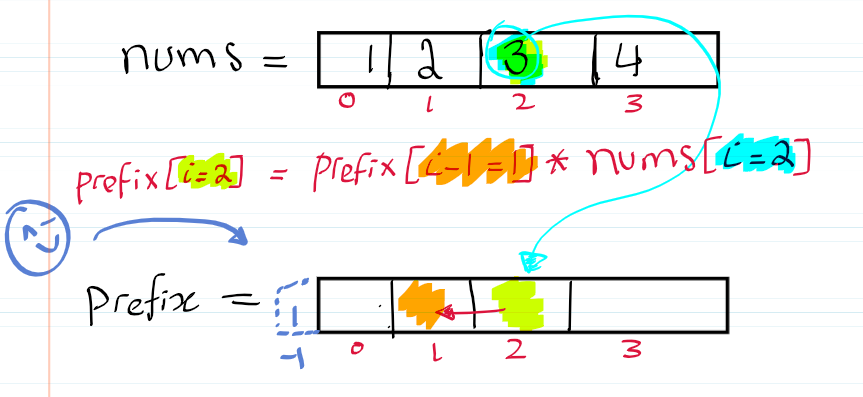 nums = 1 2 3 4
0 1 2 3
prefix[i=2] = prefix[i-1=1] * nums[i=2]
Prefix = 1
-1 0 1 2 3